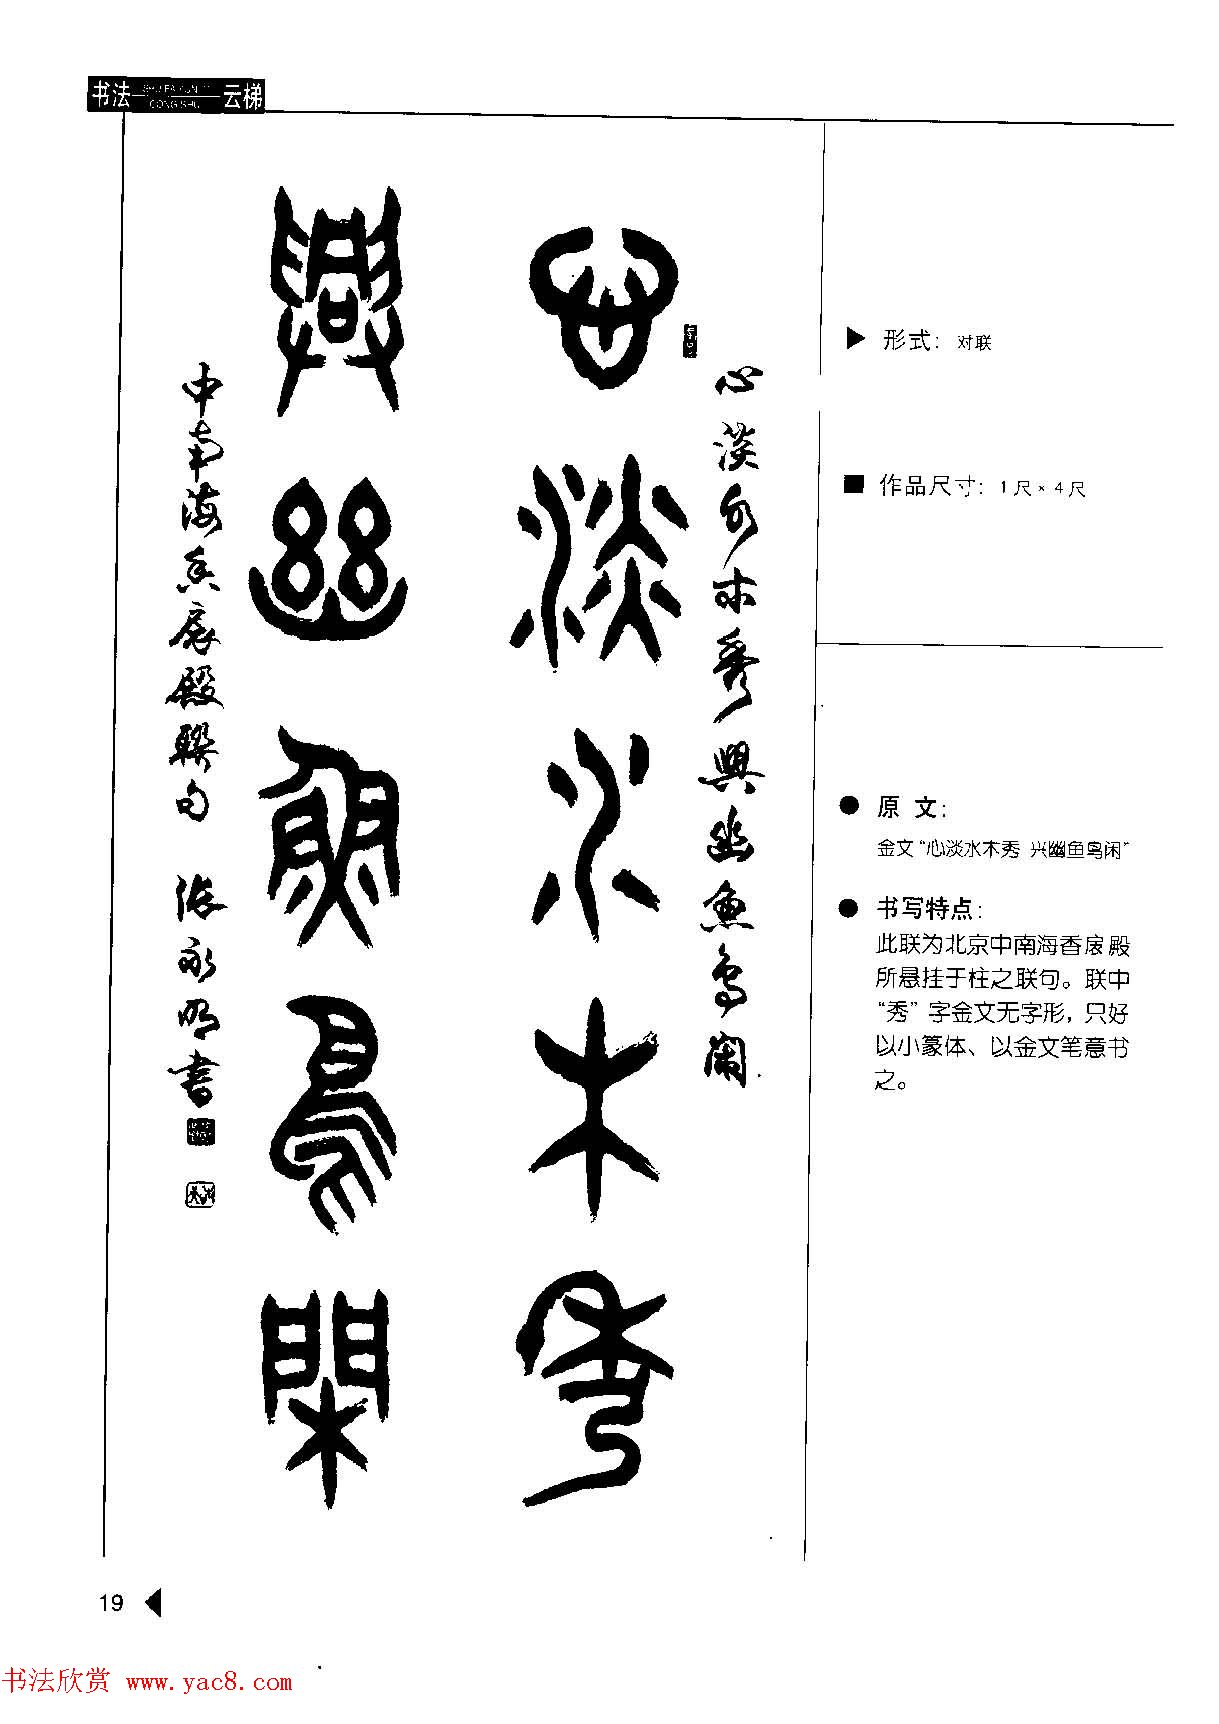 书法 SHU FA YUN TI CONG SHU 云梯
心淡水木秀
興幽魚鳥閑
心淡水木秀興幽魚鳥閑
中南海香扆殿聯句 張永明書
▶ 形式：对联
■ 作品尺寸：1尺×4尺
● 原 文：
金文“心淡水木秀 兴幽鱼鸟闲”
● 书写特点：
此联为北京中南海香扆殿
所悬挂于柱之联句。联中
“秀”字金文无字形，只好
以小篆体、以金文笔意书
之。
19
书法欣赏 www.yac8.com